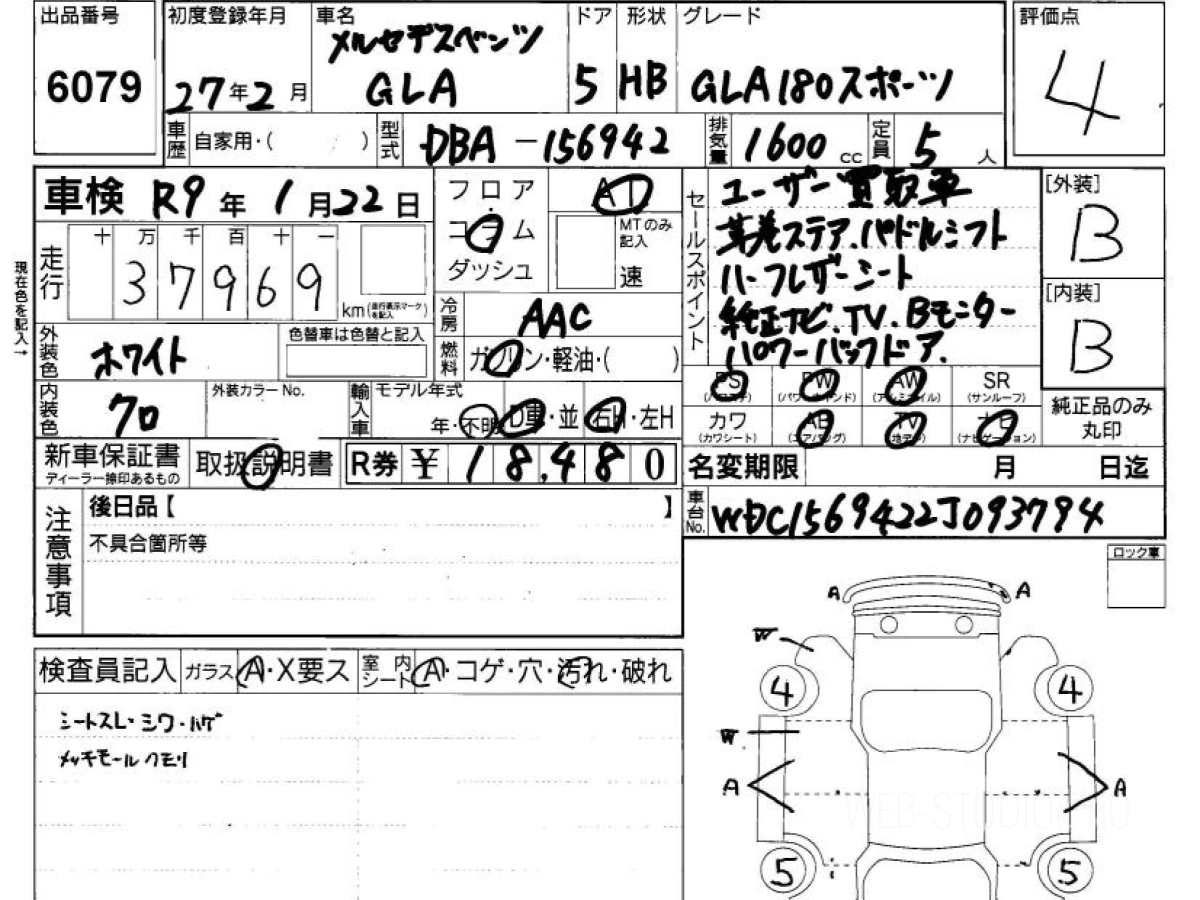 出品番号
6079
初度登録年月
27年2月
車名
メルセデスベンツ
GLA
ドア
5
形状
HB
グレード
GLA180スポーツ
評価点
4
車歴 自家用・( )
型式 DBA-156942
排気量 1600 cc
定員 5 人
車検 R9年 1月22日
走行
十 万 千 百 十 一
37969
km(走行表示マークを記入)
現在色を記入→
フロア
コラム
ダッシュ
AT
MTのみ
記入
速
冷房 AAC
燃料 ガソリン・軽油・( )
セールスポイント
ユーザー買取車
革巻ステア、パドルシフト
ハーフレザーシート
純正ナビ、TV、Bモニター
パワーバックドア、
[外装]
B
[内装]
B
外装色 ホワイト
色替車は色替と記入
内装色 クロ
外装カラーNo.
輸入車
モデル年式
年・不明
D車・並
右H・左H
PS
(パワステ)
PW
(パワーウインド)
AW
(アルミホイル)
SR
(サンルーフ)
カワ
(カワシート)
AB
(エアバッグ)
TV
(地デジ)
ナビ
(ナビゲーション)
純正品のみ
丸印
新車保証書
ディーラー捺印あるもの
取扱説明書
R券 ¥ 18,480
名変期限 月 日迄
車台No. WDC1569422J093794
注意事項
後日品【 】
不具合箇所等
ロック車
検査員記入
ガラス A・X要ス
室内シート A・コゲ・穴・汚れ・破れ
シートスレ・シワ・ハゲ
メッキモールクモリ
A A
W
4 4
W
A A
5 5
WEB-STUDIO.PRO